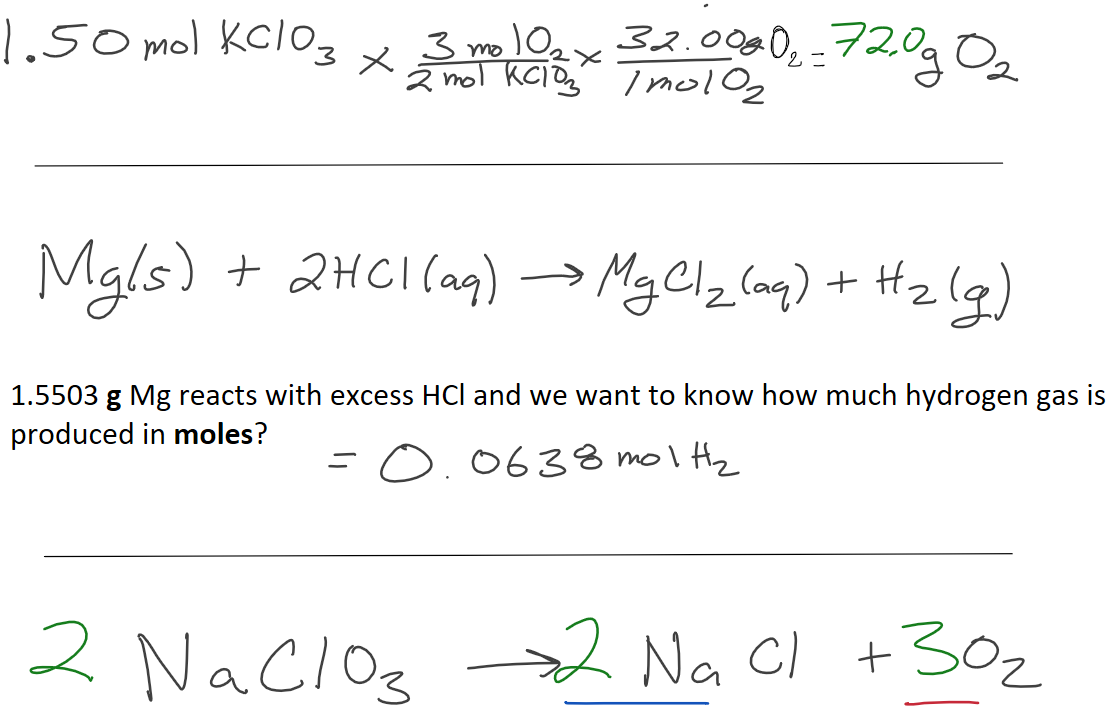 1.50 mol KClO₃ × 3 mol O₂ / 2 mol KClO₃ × 32.00g O₂ / 1 mol O₂ = 72.0g O₂
Mg(s) + 2HCl(aq) → MgCl₂(aq) + H₂(g)
1.5503 g Mg reacts with excess HCl and we want to know how much hydrogen gas is
produced in moles?
= 0.0638 mol H₂
2 NaClO₃ → 2 NaCl + 3O₂